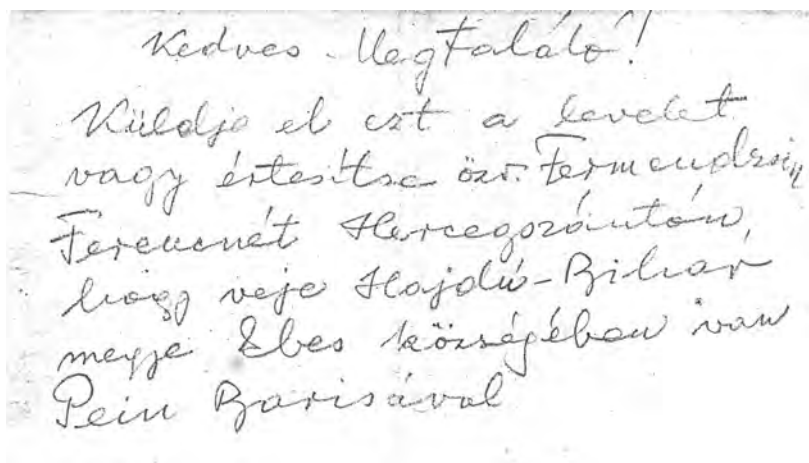 Kedves Megtaláló!
Küldje el ezt a levelet
vagy értesítse özv. Fermendzsin
Ferencnét Hercegszántón,
hogy veje Hajdú-Bihar
megye Ebes községében van
Pein Barisával